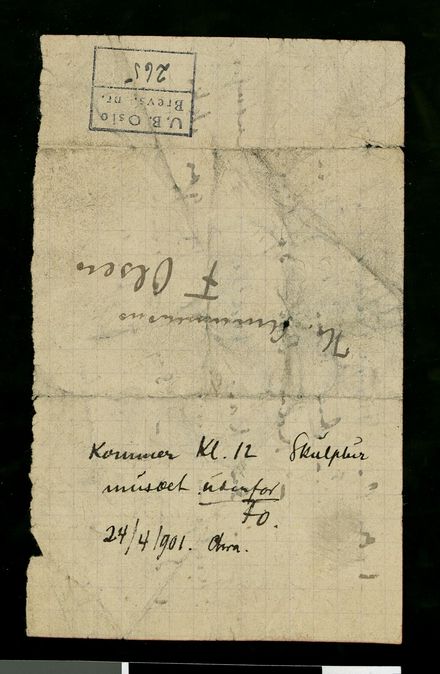 U.B. Oslo
Brevs. nr.
265
F Olsen
Kommer Kl. 12 Skulptur
musæet udenfor
FO.
24/4/901. Chra.